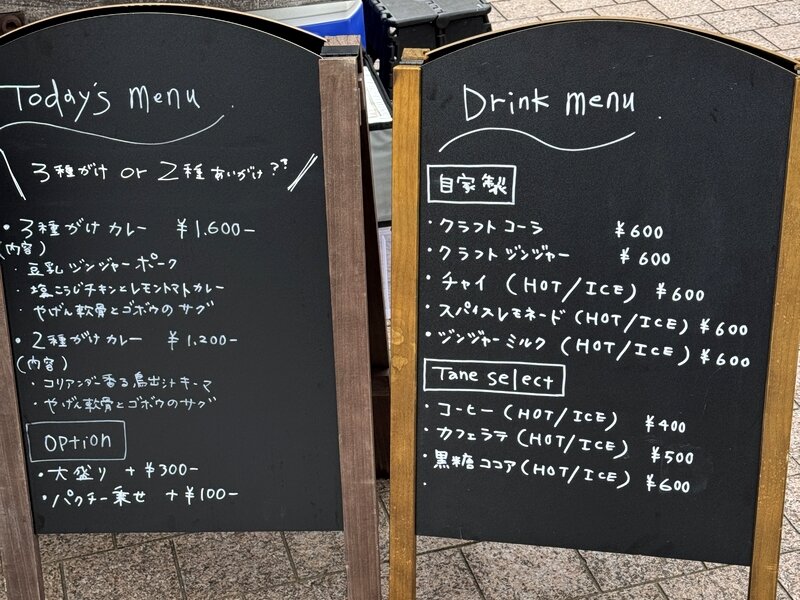 Today's menu.
3種がけ or 2種あいがけ??
・3種がけカレー ¥1,600-
(内容)
・豆乳ジンジャーポーク
・塩こうじチキンとレモントマトカレー
・やげん軟骨とゴボウのサグ
・2種がけカレー ¥1,200-
(内容)
・コリアンダー香る鳥出汁キーマ
・やげん軟骨とゴボウのサグ
option
・大盛り +¥300-
・パクチー乗せ +¥100-
Drink menu.
自家製
・クラフトコーラ ¥600
・クラフトジンジャー ¥600
・チャイ (HOT/ICE) ¥600
・スパイスレモネード (HOT/ICE) ¥600
・ジンジャーミルク (HOT/ICE) ¥600
Tane select
・コーヒー (HOT/ICE) ¥400
・カフェラテ (HOT/ICE) ¥500
・黒糖ココア (HOT/ICE) ¥600
・